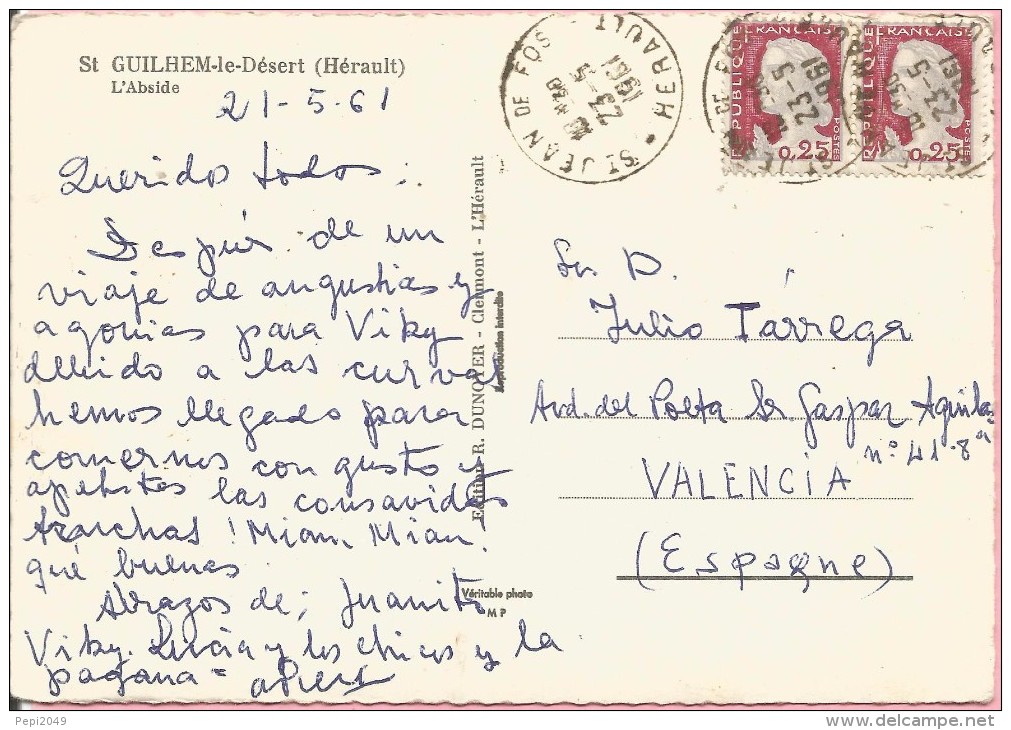 St GUILHEM-le-Désert (Hérault)
L'Abside
21-5-61
Queridos todos:
Despúes de un
viaje de angustias y
agonias para Viky
debido a las curvas
hemos llegado para
comernos con gusto y
las consavidas
truchas! Miam Miam!
qué buenas
Abrazos de; Juanito
Viky. Lucia y los chicos y la
pagana =
Edition R. DUNOYER - Clermont - L'Hérault
Reproduction interdite
Véritable photo
M P
ST JEAN DE FOS
HERAULT
23-5
1961
REPUBLIQUE FRANÇAISE
0,25
POSTES
REPUBLIQUE FRANÇAISE
0,25
POSTES
Sr. D.
Julio Tárrega
Avd. del Poeta Sr Gaspar Aguilar
nº 41-8ª
VALENCIA
(Espagne)
Pepi2049
www.delcampe.net